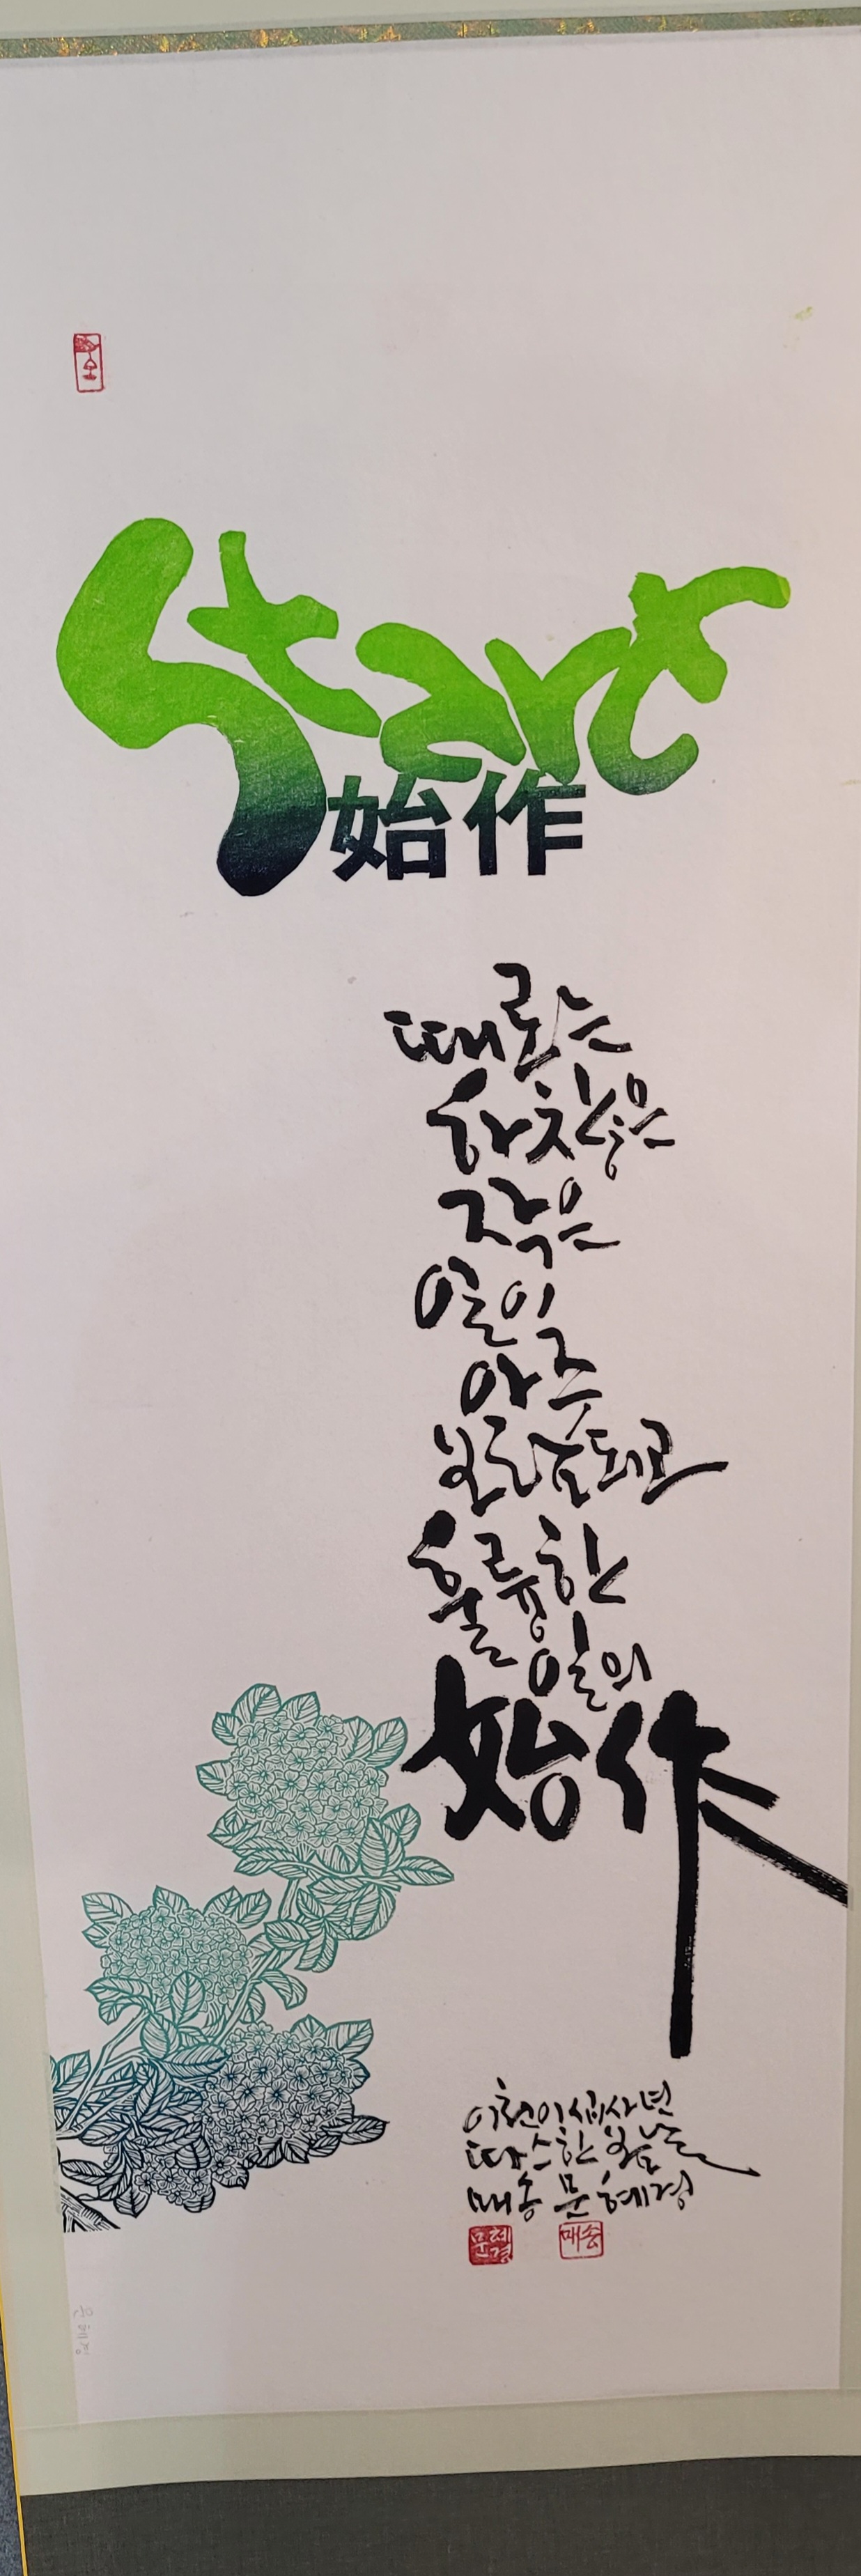 Start
始作
때로는
하찮은
작은
일이
아주
보람되고
훌륭한
일의
始作
이천이십사년
따스한 봄날
매송 문혜경
문혜경
매송